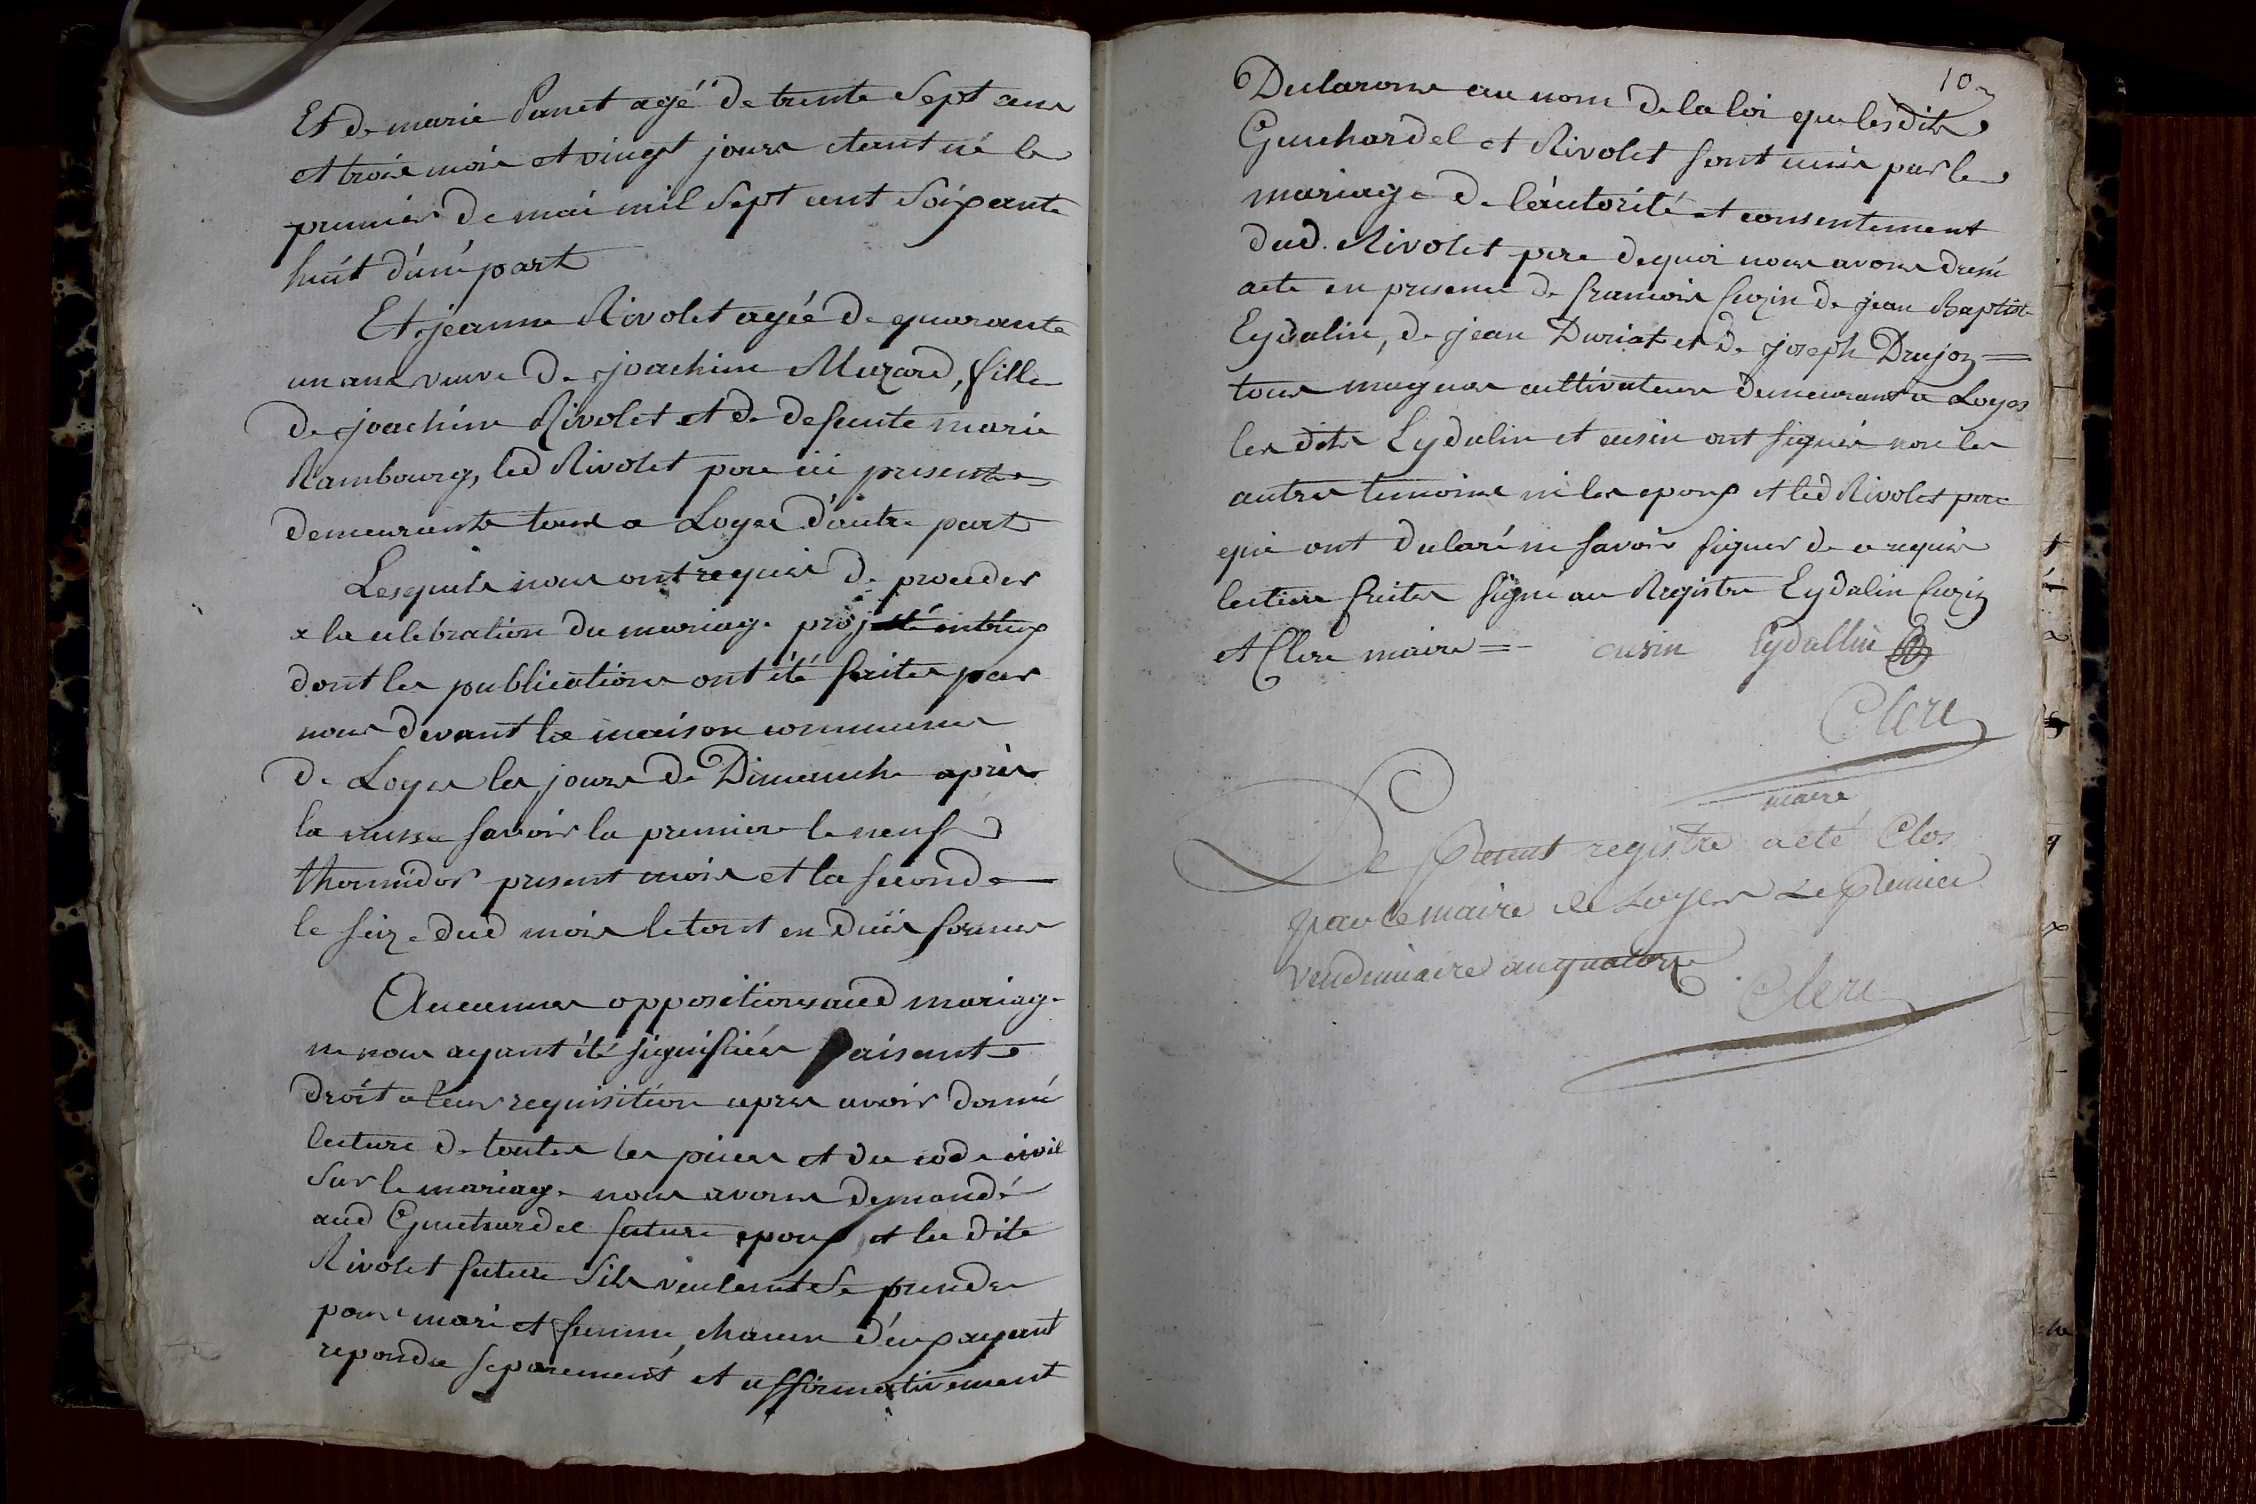 Et de marie Panet agé de trente Sept ans
et trois mois et vingt jours etant né le
premier de mai mil Sept cent Soixante
huit d'une part
Et jeanne Rivolet agée de quarante
un ans veuve de joachim Muzard, fille
de joachim Rivolet et de defunte marie
Rambourg, led Rivolet pere ici present
demeurants tous a Loyes d'autre part
Lesquels nous ont requis de proceder
a la celebration du mariage projetté entreux
dont les publications ont été faites par
nous devant la maison commune
de Loyes les jours de Dimanche après
la messe savoir la premiere le neuf
thermidor present mois et la seconde
le seize dud mois le tout en due forme
Aucunnes oppositions aud mariage
ne nous ayant été signifiées faisant
droit a leur requisition apres avoir donné
lecture de toutes les pieces et du code civil
sur le mariage nous avons demandé
aud Guichardel future epoux et la dite
Rivolet future s'ils veulent se prendre
pour mari et femme, chacun d'eux ayant
repondu separement et affirmativement
10
Declarons au nom de la loi que lesdits
Guichardel et Rivolet sont unis par le
mariage de l'autorité et consentement
dud. Rivolet pere de quoi nous avons dressé
acte en presence de francois Cuzin de jean Baptiste
Eydalin, de jean Duriat et de joseph Drujon =
tous majeurs cultivateurs demeurant a Loyes
les dits Eydalin et cusin ont signés non les
autres temoins ni les epoux et led Rivolet pere
qui ont declaré ne savoir signer de ce requis
lecture faites signé au Registre Eydalin Cuzin
et Clerc maire = cusin Eydallin
Clerc
maire
Le present registre a eté Clos
par le maire de Loyes Le premier
vendemiaire an quatorze
Clerc